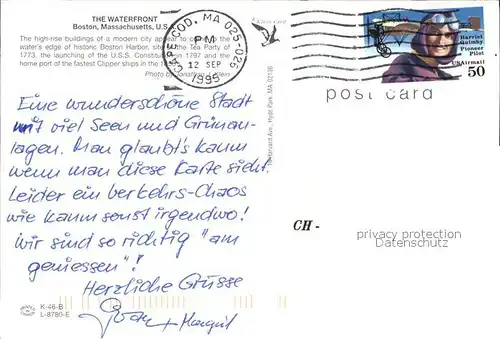 THE WATERFRONT
Boston, Massachusetts, U.S.A.
The high-rise buildings of a modern city appear to
water's edge of historic Boston Harbor, site of the Tea Party of
1773, the launching of the U.S.S. Constitution in 1797 and the
home port of the fastest Clipper ships in the
Photo by Jonathan Klein
CAPE COD, MA 025-026
PM
12 SEP
1995
Harriet
Quimby
Pioneer
Pilot
USAirmail
50
post card
Hyde Park, MA 02136
Eine wunderschöne Stadt
mit viel Seen und Grünan-
lagen. Man glaubt's kaum
wenn man diese Karte sieht.
Leider ein Verkehrs-Chaos
wie kaum sonst irgendwo!
Wir sind so richtig "am
geniessen"!
Herzliche Grüsse
+ Margrit
CH -
privacy protection
Datenschutz
K-46-B
L-8780-E